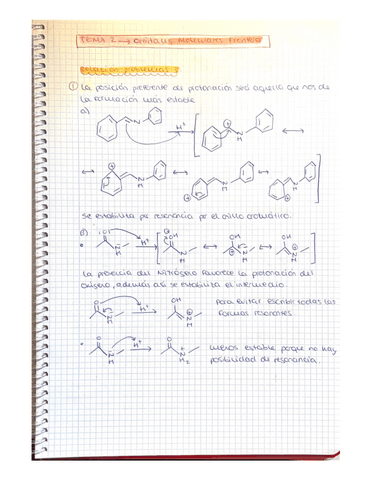 TEMA 2 → Orbitales Moleculares Frontera
① La posición preferente de protonación será aquella que nos de
la
más estable
a)
H⁺
N
H
Se estabiliza por resonancia por el anillo aromático.
b)
H⁺
OH
N
H
La presencia del Nitrógeno favorece la protonación del
oxígeno, además así se estabiliza el intermedio.
O
H⁺
OH
Para evitar escribir todas las
formas resonantes
O
H⁺
O
N
H₂
menos estable porque no hay
posibilidad de resonancia.